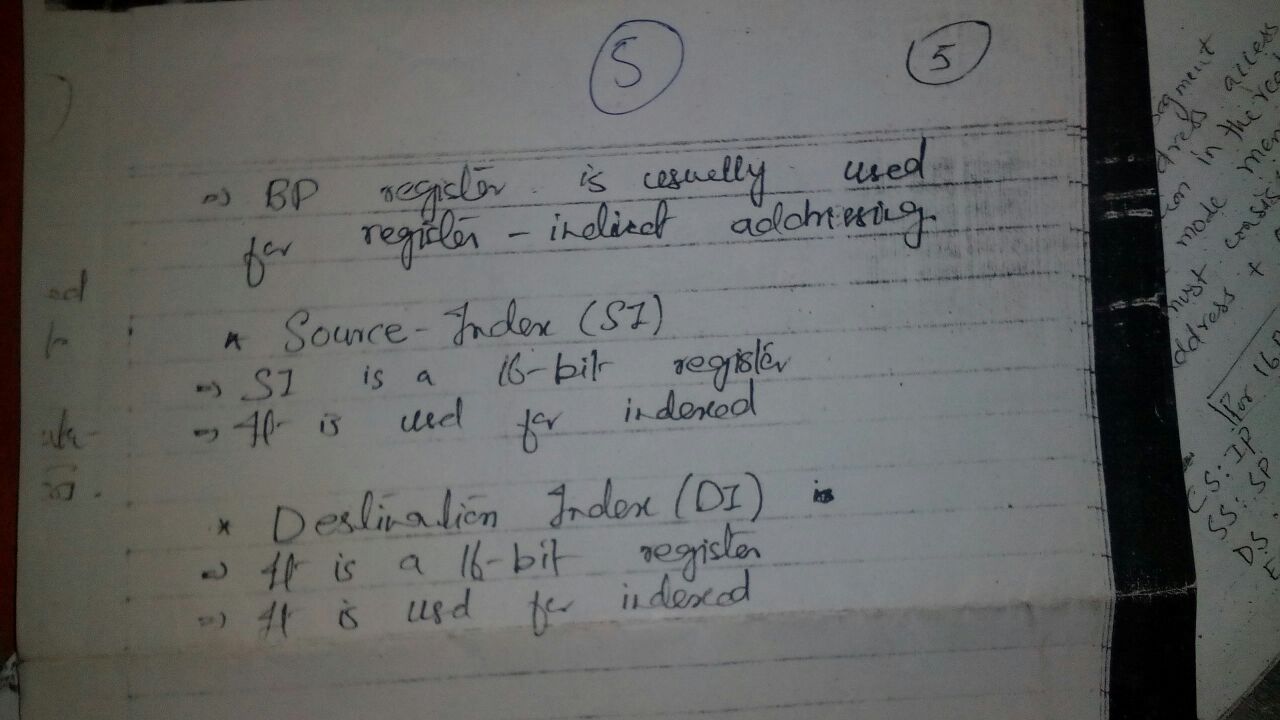 5
5
=> BP register is usually used
for register - indirect addressing.
* Source - Index (SI)
=> SI is a 16-bit register
=> It is used for indexed
* Destination Index (DI) is
=> It is a 16-bit register
=> It is used for indexed
segment
dress
ion in the access
mode mem
must consis
address +
For 16
CS: IP
SS: SP
DS
E